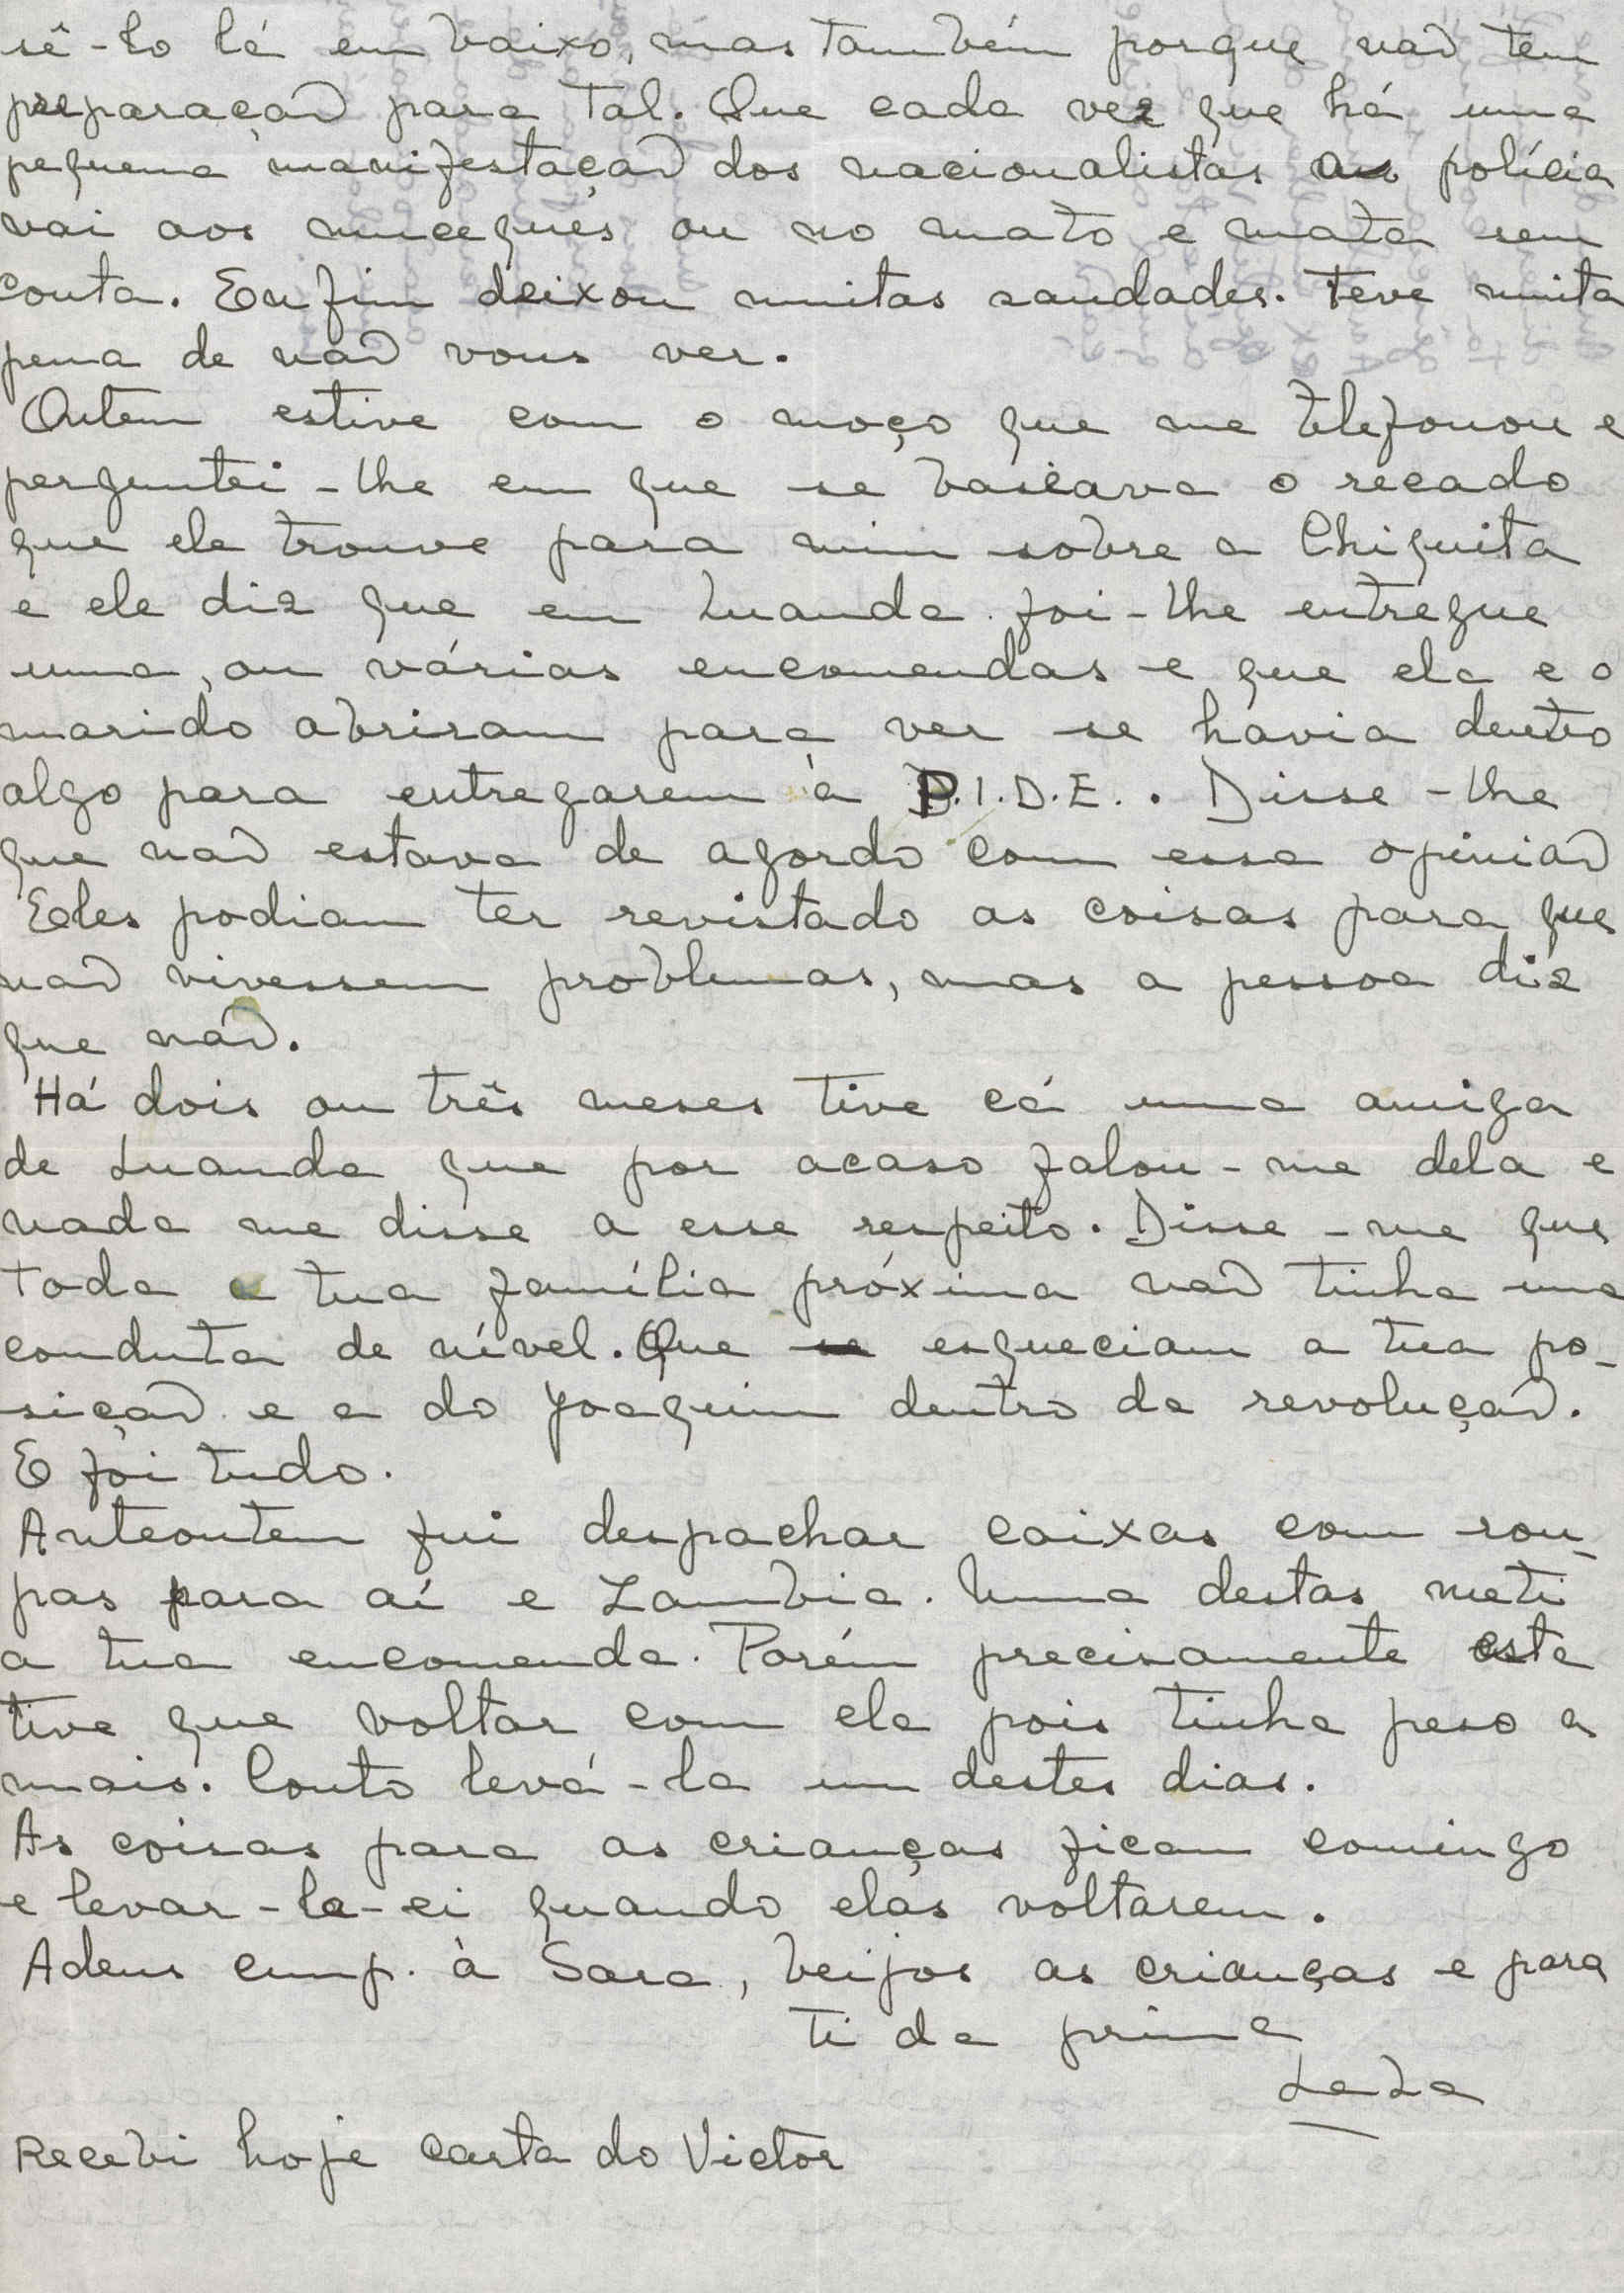 sê-lo lá em baixo, mas também porque não tem
preparação para tal. Que cada vez que há uma
pequena manifestação dos nacionalistas a polícia
vai aos muceques ou no mato e mata sem
conta. Enfim deixou muitas saudades. Teve muita
pena de não vous ver.
Ontem estive com o moço que me telefonou e
perguntei-lhe em que se baseava o recado
que ele trouve para mim sobre a Chiquita
e ele diz que em Luanda foi-lhe entregue
uma, ou várias encomendas e que ela e o
marido abriram para ver se havia dentro
algo para entregarem à P.I.D.E.. Disse-lhe
que não estava de agordo com essa opinião
Eles podiam ter revistado as coisas para que
não vivessem problemas, mas a pessoa diz
que não.
Há dois ou três meses tive cá uma amiga
de Luanda que por acaso falou-me dela e
nada me disse a esse respeito. Disse-me que
toda a tua família próxima não tinha uma
conduta de nível. Que se esqueciam a tua po-
sição e a do Joaquim dentro da revolução.
E foi tudo.
Anteontem fui despachar caixas com rou-
pas para aí e Zambia. Numa destas meti
a tua encomenda. Porém precisamente esta
tive que voltar com ela pois tinha peso a
mais. Conto levá-la um destes dias.
As coisas para as crianças ficam comingo
e levar-la-ei quando elas voltarem.
Adeus cump. à Sara, beijos as crianças e para
ti da prima
Lala
Recebi hoje carta do Victor